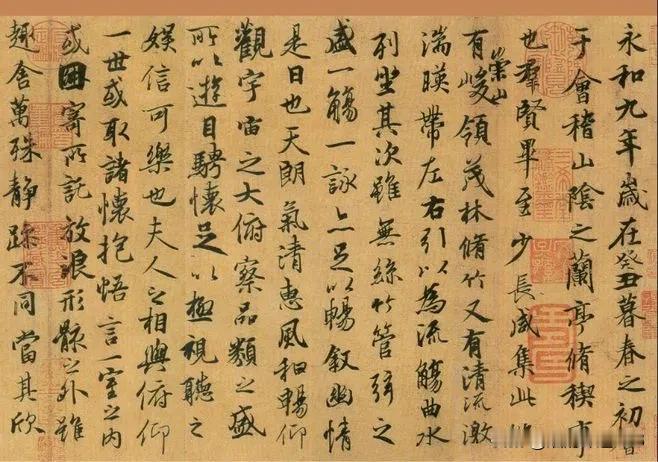 永和九年歲在癸丑暮春之初會
于會稽山陰之蘭亭脩稧事
也羣賢畢至少長咸集此地
有崇山峻領茂林脩竹又有清流激
湍暎帶左右引以為流觴曲水
列坐其次雖無絲竹管弦之
盛一觴一詠亦足以暢叙幽情
是日也天朗氣清惠風和暢仰
觀宇宙之大俯察品類之盛
所以遊目騁懷足以極視聽之
娛信可樂也夫人之相與俯仰
一世或取諸懷抱悟言一室之內
或因寄所託放浪形骸之外雖
趣舍萬殊静躁不同當其欣